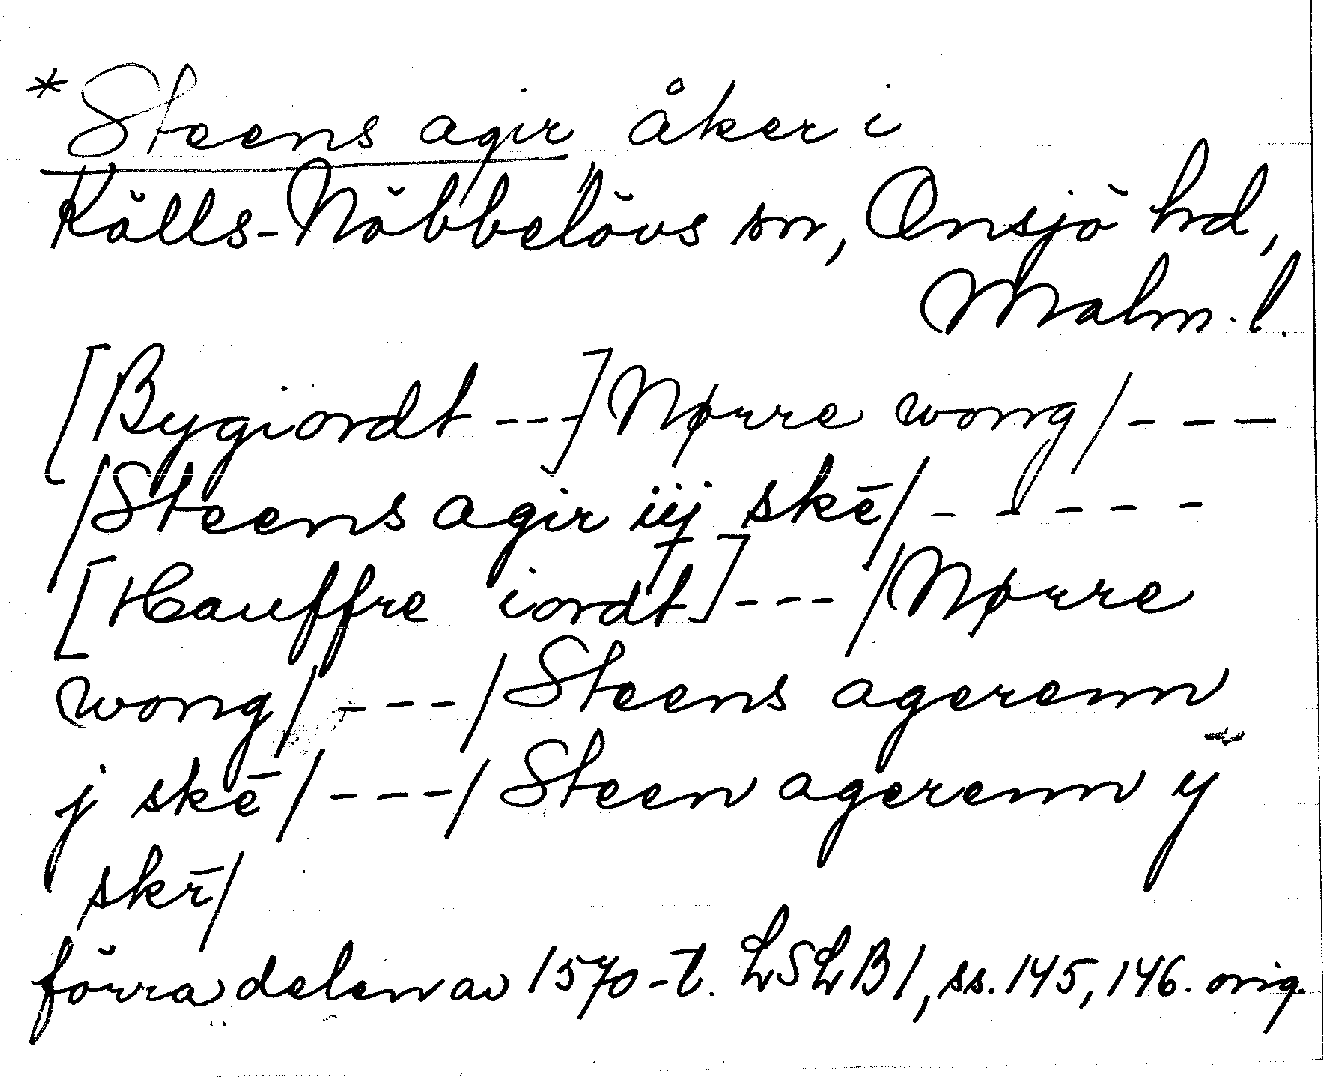 *Steens agir åker i
Källs-Nöbbelövs sn, Onsjö hd,
Malm. l.
[Bygiordt ---] Nørre wong/---
/Steens agir iij skē/-----
[Hauffre iordt]---/Nørre
wong/---/Steens agerenn
j skē/---/Steen agerenn ij
skr̄/
förra delen av 1570-t. LSLB1, ss. 145, 146. orig.